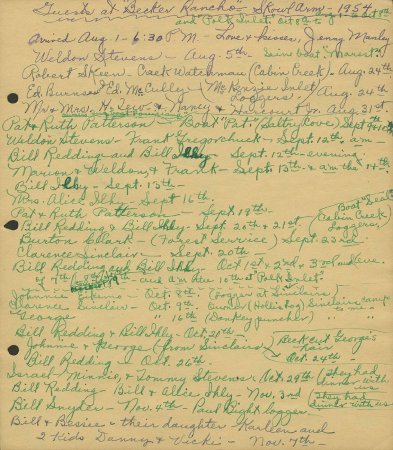 "Guests at Becker Rancho" - Skowl Arm - 1954
and "Polk Inlet"
Arrived Aug 1 - 6:30 P.M. - Love & kisses, Jenny Manley
Weldon Stevens - Aug. 5th - Seine boat "Marest"
Robert Skeen - Creek Waterman (Cabin Creek) - Aug. 24th
Ed Burness & Ed. McCulley (McKenzie Inlet Loggers) Aug. 24th
Mr & Mrs. H. & Nancy & Aug. 31st.
Pat & Ruth Patterson - Boat "Pat" (Saltry Cove) Sept.
Weldon Stevens - Frank Sept. 12th. am -
Bill Redding and Bill Ilky - Sept. 12th - evening
Marion & Weldon & Frank - Sept. 13th - & am the 14th.
Bill Ilky - Sept. 15th -
Mrs. Alice Ilky - Sept 16th.
Pat & Ruth Patterson - Sept. 19th -
Boat
Bill Redding & Bill Ilky - Sept. 20th & 21st (Cabin Creek Loggers)
Burton Clark - (Forest Service) Sept. 23rd
Clarence Sinclair - Sept. 20th
Bill Redding and Bill Ilky - Oct 1st & 2nd & 3rd and eve.
of 7th and am
Johnnie - Oct. 8th. (Logger at Sinclairs)
Clarence Sinclair - Oct. 9th Owner Sinclair Camp
George - " 16th (Donkey puncher) " " "
Bill Redding & Bill Ilky - Oct 20th
Johnie & George - (from Sinclairs) Beck cut George's hair - Oct. 24th -
Bill Redding - Oct. 26th
Israel, Minnie, & Tommy Stevens - Oct. 29th (They had dinner with us
Bill Redding - Bill & Allie Ilky - Nov. 3rd (They had dinner with us
Bill Snyder - Nov. 4th - Paul Bight logger
Bill & Bessie & their daughter Karleen and
2 Kids Danny & Vicki - Nov. 7th -